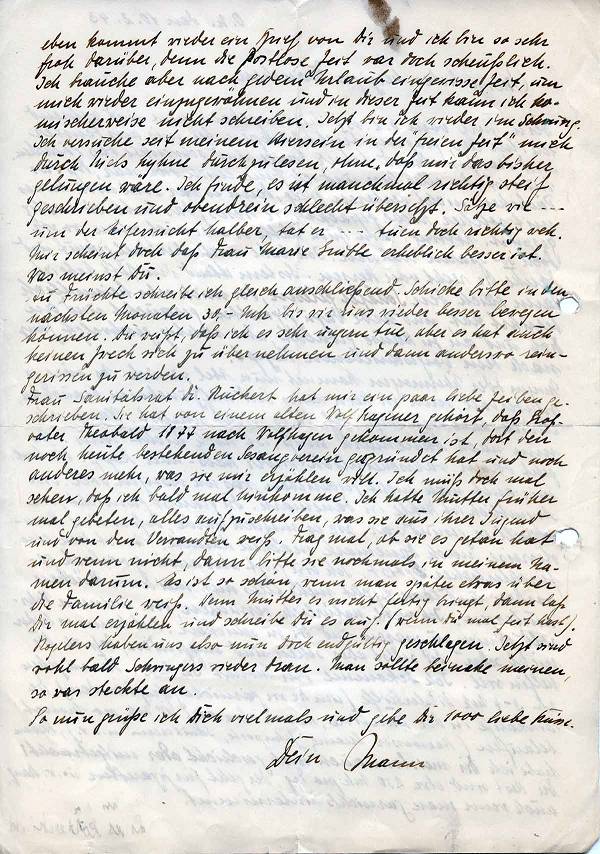 eben kommt wieder ein Brief von Dir und ich bin so sehr
froh darüber, denn die postlose Zeit war doch scheußlich.
Ich brauche aber nach jedem Urlaub eine gewisse Zeit, um
mich wieder einzugewöhnen und in dieser Zeit kann ich ko-
mischerweise nicht schreiben. Jetzt bin ich wieder im Schwung.
Ich versuche seit meinem Hiersein in der "freien Zeit" mich
durch Niels Lyhne durchzulesen, ohne, daß mir das bisher
gelungen wäre. Ich finde, es ist manchmal richtig steif
geschrieben und obendrein schlecht übersetzt. Sätze wie ---
um der Eifersucht halber, tat er --- tuen doch richtig weh.
Mir scheint doch daß Frau Marie Grubbe erheblich besser ist.
Was meinst Du.
An Früchte schreibe ich gleich anschließend. Schicke bitte in den
nächsten Monaten 30,- Mk bis wir uns wieder besser bewegen
können. Du weißt, daß ich es sehr ungern tue, aber es hat auch
keinen Zweck sich zu übernehmen und dann anderswo rein-
gerissen zu werden.
Frau Sanitätsrat Dr. Rückert hat mir ein paar liebe Zeilen ge-
schrieben. Sie hat von einem alten Wolfhagener gehört, daß Groß-
vater Theobald 1877 nach Wolfhagen gekommen ist, dort den
noch heute bestehenden Gesangverein gegründet hat und noch
anderes mehr, was sie mir erzählen will. Ich muß doch mal
sehen, daß ich bald mal hinkomme. Ich hatte Mutter früher
mal gebeten, alles aufzuschreiben, was sie aus ihrer Jugend
und von den Verwandten weiß. Frag mal, ob sie es getan hat
und wenn nicht, dann bitte sie nochmals in meinem Na-
men darum. Es ist so schön, wenn man später etwas über
die Familie weiß. Wenn Mutter es nicht fertig bringt, dann laß
Dir mal erzählen und schreibe Du es auf. (wenn du mal Zeit hast).
haben uns also nun doch endgültig geschlagen. Jetzt sind
wohl bald Schwingers wieder dran. Man sollte beinahe meinen,
so was steckte an.
So nun grüße ich Dich vielmals und gebe Dir 1000 liebe Küsse.
Dein Mann